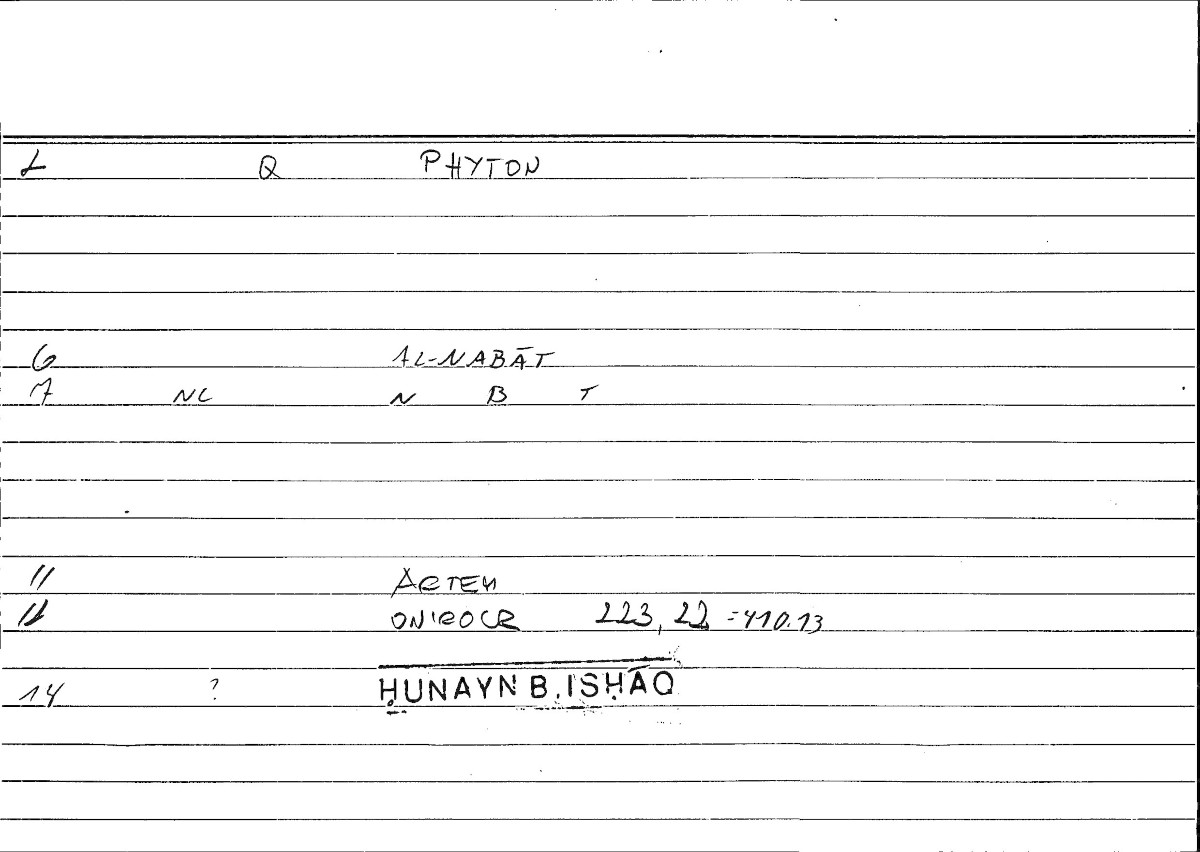 1 Q PHYTON
6 AL-NABĀT
7 NL N B T
11 ARTEM
12 ONIROCR 223, 22 = 410.13
14 ? ḤUNAYN B. ISḤĀQ